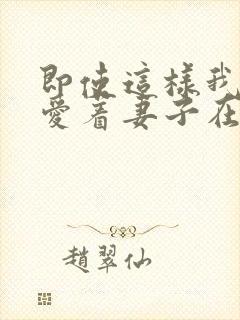 即使這樣我
愛着妻子在
趙翠仙